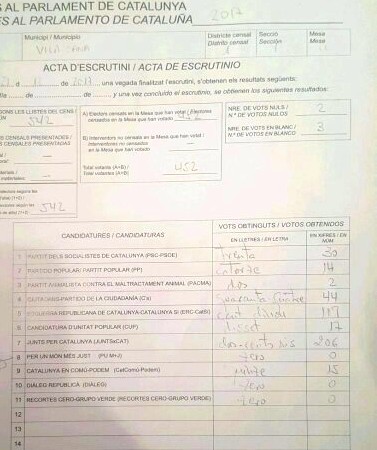 S AL PARLAMENT DE CATALUNYA
ES AL PARLAMENTO DE CATALUÑA 2017
Municipi / Municipio
Districte censal
Distrito censal
Secció
Sección
Mesa
Mesa
1
ACTA D'ESCRUTINI / ACTA DE ESCRUTINIO
de 2017, una vegada finalitzat l'escrutini, s'obtenen els resultats següents:
día de de y una vez concluido el escrutinio, se obtienen los siguientes resultados:
ONS LES LLISTES DEL CENS /
542
A) Electors censats en la Mesa que han votat / Electores
censados en la Mesa que han votado
B) Interventors no censats en la Mesa que han votat /
Interventores no censados
en la Mesa que han votado
Total votants (A+B) /
Total votantes (A+B)
452
NRE. DE VOTS NULS /
N.º DE VOTOS NULOS
2
NRE. DE VOTS EN BLANC /
N.º DE VOTOS EN BLANCO
3
S CENSALS PRESENTADES /
S CENSALES PRESENTADAS
542
CANDIDATURES / CANDIDATURAS
VOTS OBTINGUTS / VOTOS OBTENIDOS
EN LLETRES / EN LETRA
EN XIFRES / EN NÚM
1 PARTIT DELS SOCIALISTES DE CATALUNYA (PSC-PSOE) trenta 30
2 PARTIDO POPULAR/ PARTIT POPULAR (PP) catorze 14
3 PARTIT ANIMALISTA CONTRA EL MALTRACTAMENT ANIMAL (PACMA) dos 2
4 CIUTADANS-PARTIDO DE LA CIUDADANÍA (C's) 44
5 ESQUERRA REPUBLICANA DE CATALUNYA-CATALUNYA SÍ (ERC-CatSí) cent 117
6 CANDIDATURA D'UNITAT POPULAR (CUP) disset 17
7 JUNTS PER CATALUNYA (JUNTSxCAT) dos-cents sis 206
8 PER UN MÓN MÉS JUST (PUM+J) zero 0
9 CATALUNYA EN COMÚ-PODEM (CatComú-Podem) quinze 15
10 DIÀLEG REPUBLICÀ (DIÀLEG) zero 0
11 RECORTES CERO-GRUPO VERDE (RECORTES CERO-GRUPO VERDE) zero 0
12
13
14